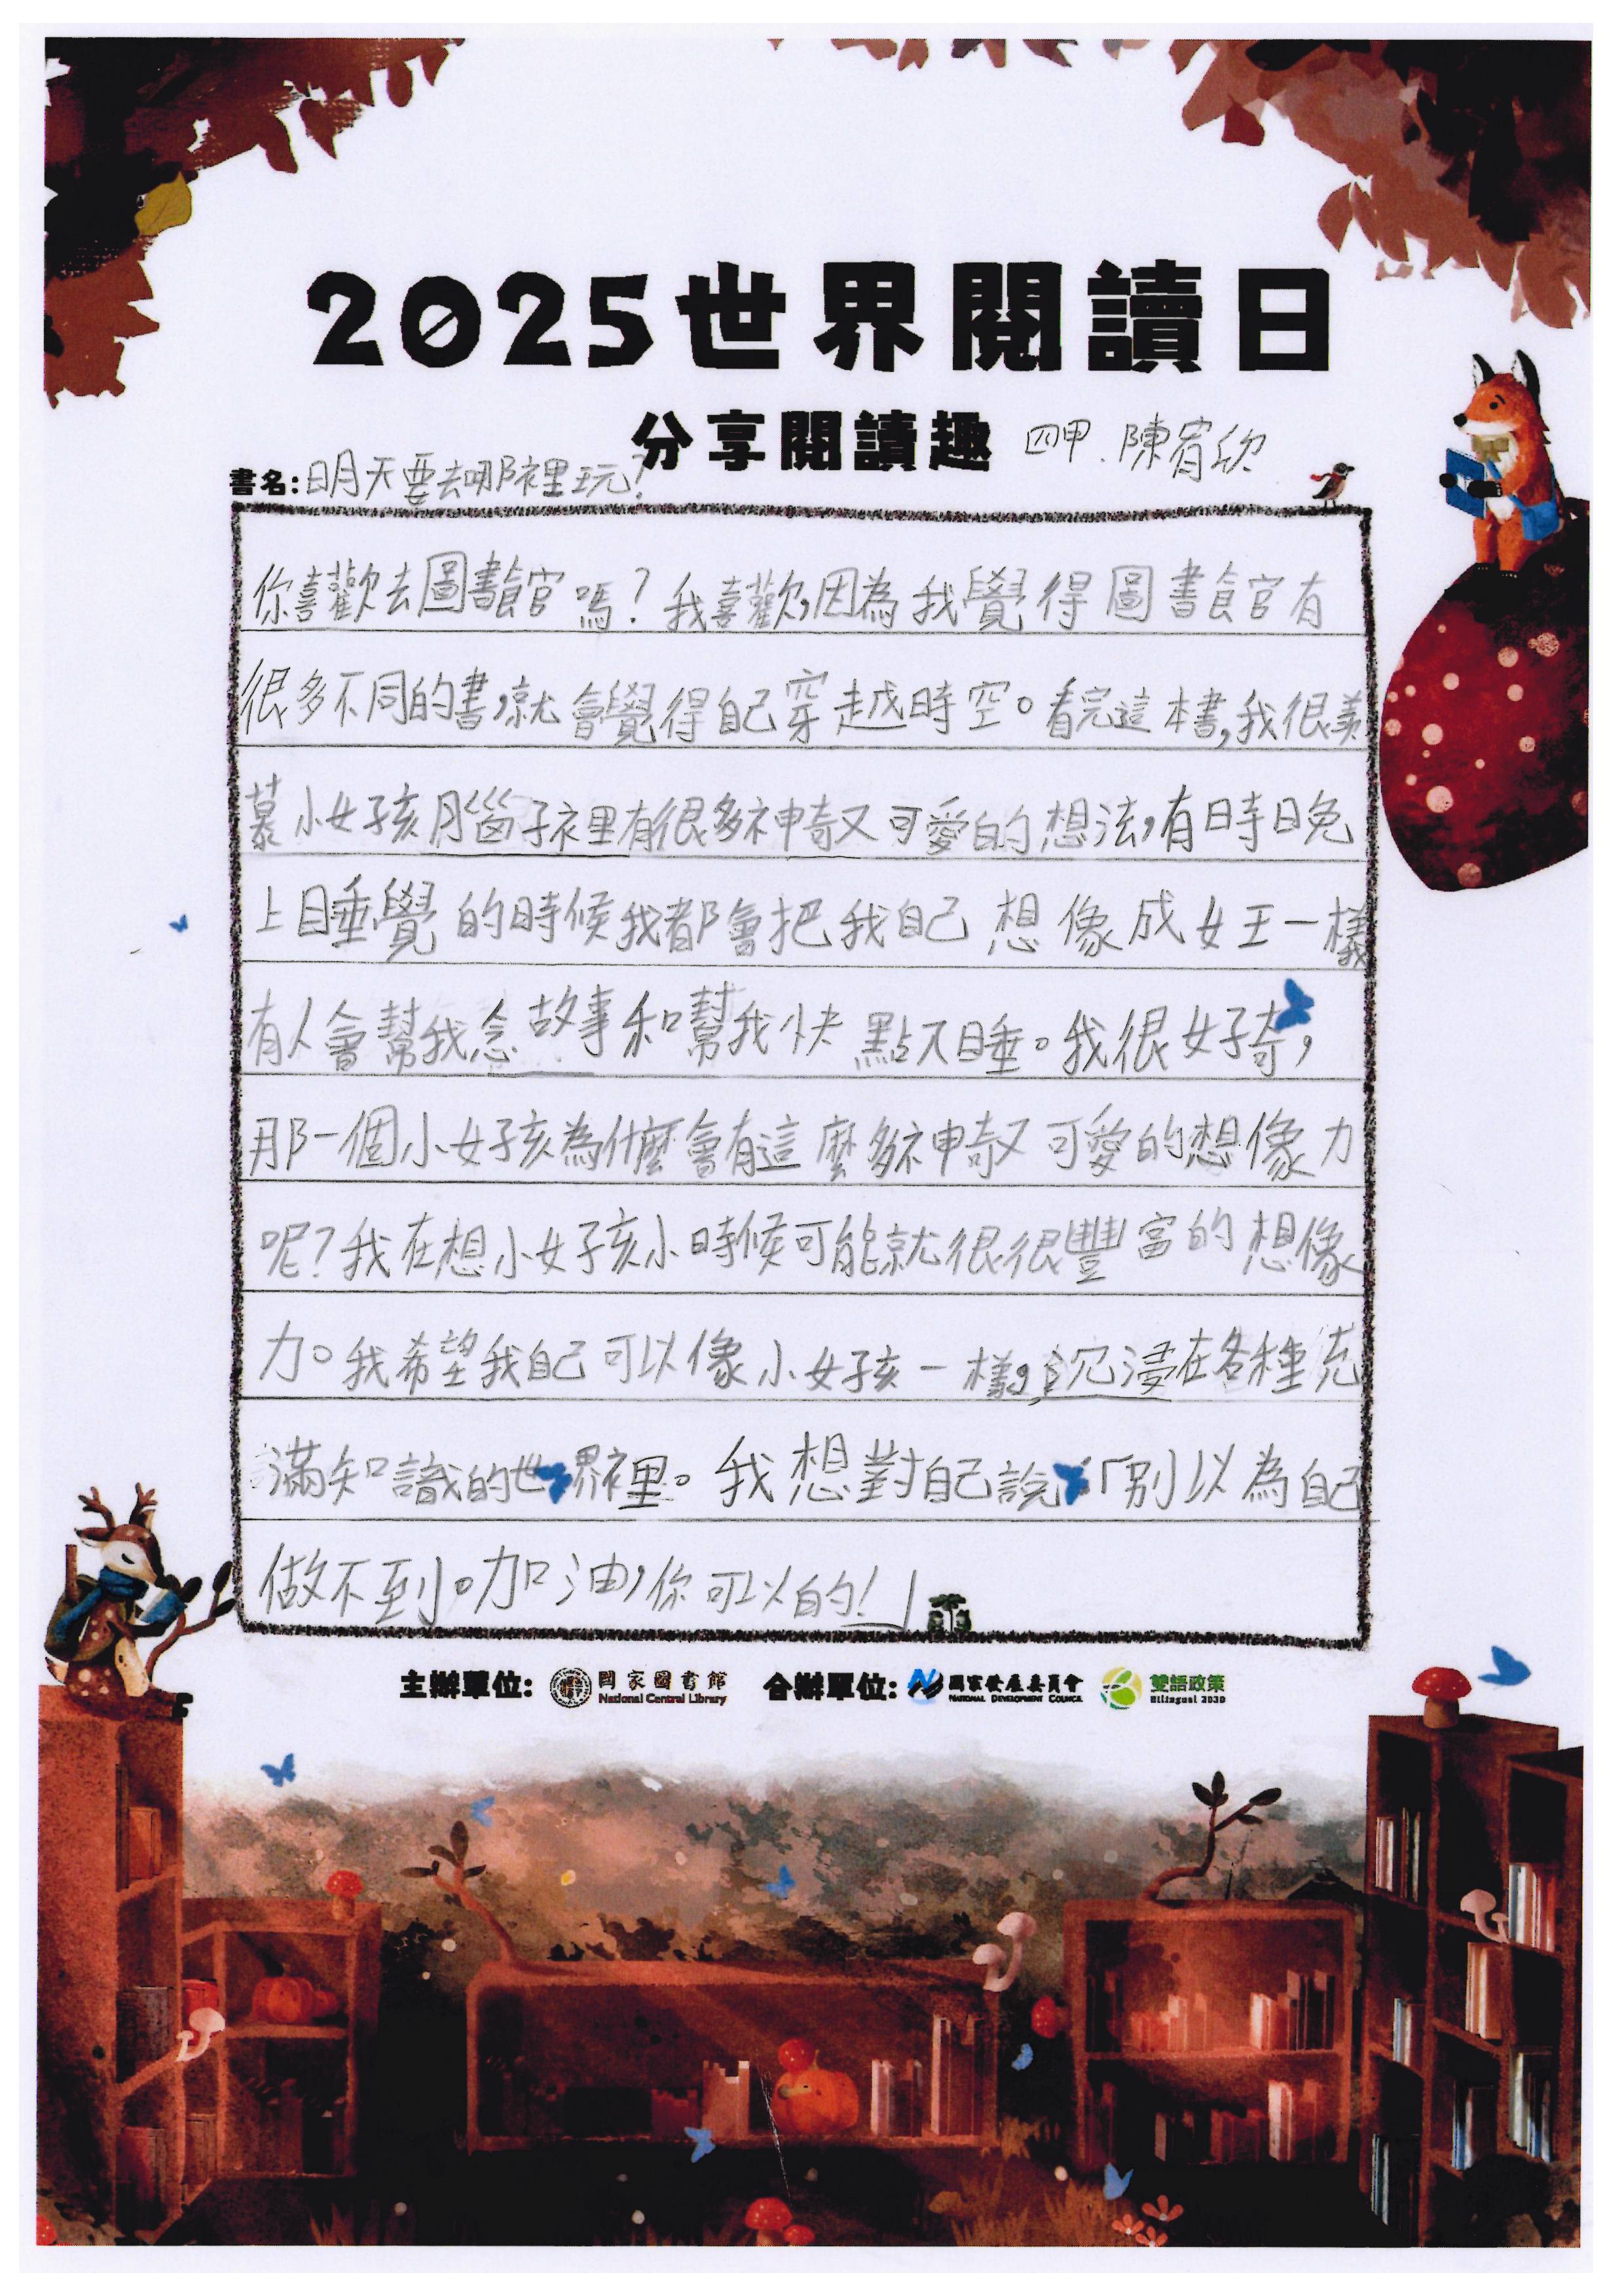 2025世界閱讀日
分享閱讀趣 四甲、陳宥欣
書名:明天要去哪裡玩?
你喜歡去圖書館嗎?我喜歡,因為我覺得圖書館有
很多不同的書,就會覺得自己穿越時空。看完這本書,我很羨
慕小女孩腦子裡有很多神奇又可愛的想法,有時晚
上睡覺的時候我都會把我自己想像成女王一樣
有人會幫我念故事和幫我快點入睡。我很好奇,
那一個小女孩為什麼會有這麼多神奇又可愛的想像力
呢?我在想小女孩小時候可能就很很豐富的想像
力。我希望我自己可以像小女孩一樣,沉浸在各種充
滿知識的世界裡。我想對自己說「別以為自己
做不到。加油,你可以的!」
主辦單位: 國家圖書館 National Central Library 合辦單位: 國家發展委員會 NATIONAL DEVELOPMENT COUNCIL 雙語政策 Bilingual 2030